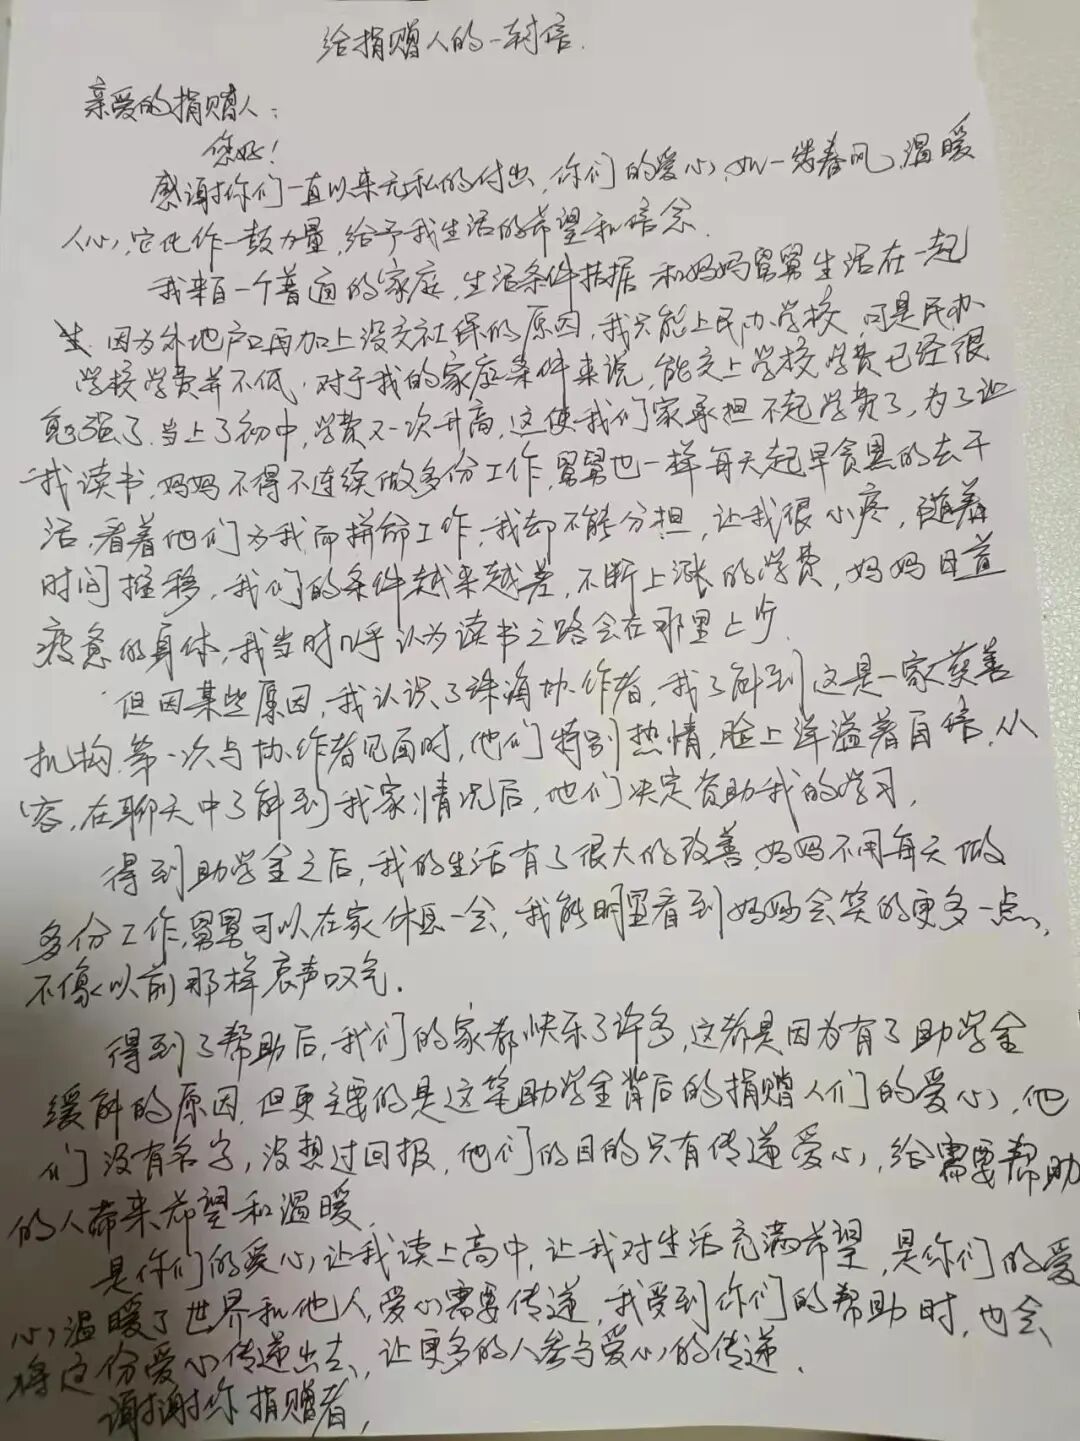 给捐赠人的一封信.
亲爱的捐赠人：
您好！
感谢你们一直以来无私的付出，你们的爱心，如一缕春风，温暖
人心，它化作一鼓力量，给予我生活的希望和信念.
我来自一个普通的家庭，生活条件拮据 和妈妈舅舅生活在一起
生. 因为外地户口再加上没交社保的原因，我只能上民办学校 可是民办
学校学费并不低，对于我的家庭条件来说，能交上学校学费已经很
勉强了. 当上了初中，学费又一次升高，这使我们家承担不起学费了，为了让
我读书，妈妈不得不连续做多份工作，舅舅也一样每天起早贪黑的去干
活，看着他们为我而拼命工作，我却不能分担，让我很心疼，随着
时间推移，我们的条件越来越差，不断上涨的学费，妈妈日益
疲惫的身体，我当时几乎认为读书之路会在那里止步.
但因某些原因，我认识了珠海协作者，我了解到这是一家慈善
机构，第一次与协作者见面时，他们特别热情，脸上洋溢着自信，从
容，在聊天中了解到我家情况后，他们决定资助我的学习，
得到助学金之后，我的生活有了很大的改善，妈妈不用每天做
多份工作，舅舅可以在家休息一会，我能明显看到妈妈会笑的更多一点，
不像以前那样哀声叹气.
得到了帮助后，我们的家都快乐了许多，这都是因为有了助学金
缓解的原因，但更主要的是这笔助学金背后的捐赠人们的爱心，他
们没有名字，没想过回报，他们的目的只有传递爱心，给需要帮助
的人带来希望和温暖，
是你们的爱心让我读上高中，让我对生活充满希望，是你们的爱
心温暖了世界和他人，爱心需要传递，我受到你们的帮助时，也会
将这份爱心传递出去，让更多的人参与爱心的传递.
谢谢你捐赠者，